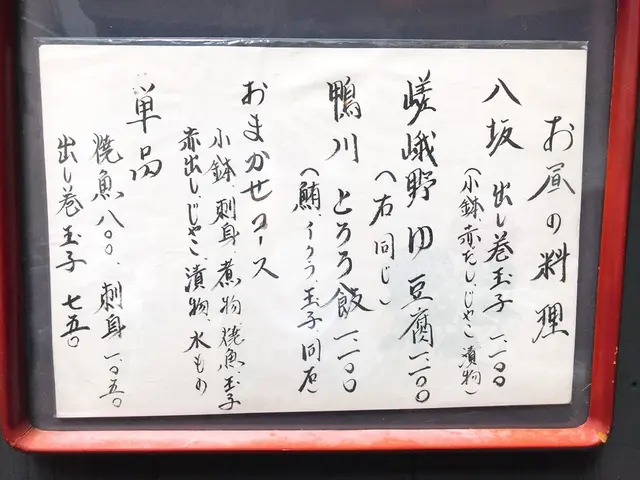 お昼の料理
八坂 出し巻玉子 一、一〇〇
(小鉢、赤だし、じゃこ、漬物)
嵯峨野 ゆ豆腐 一、二〇〇
(右同じ)
鴨川 とろろ飯 一、二〇〇
(鮪、イクラ、玉子 同右)
おまかせコース
小鉢、刺身、煮物、焼魚、玉子
赤出し、じゃこ、漬物、水もの
単品
焼魚 八〇〇、刺身 一、〇五〇
出し巻玉子 七五〇